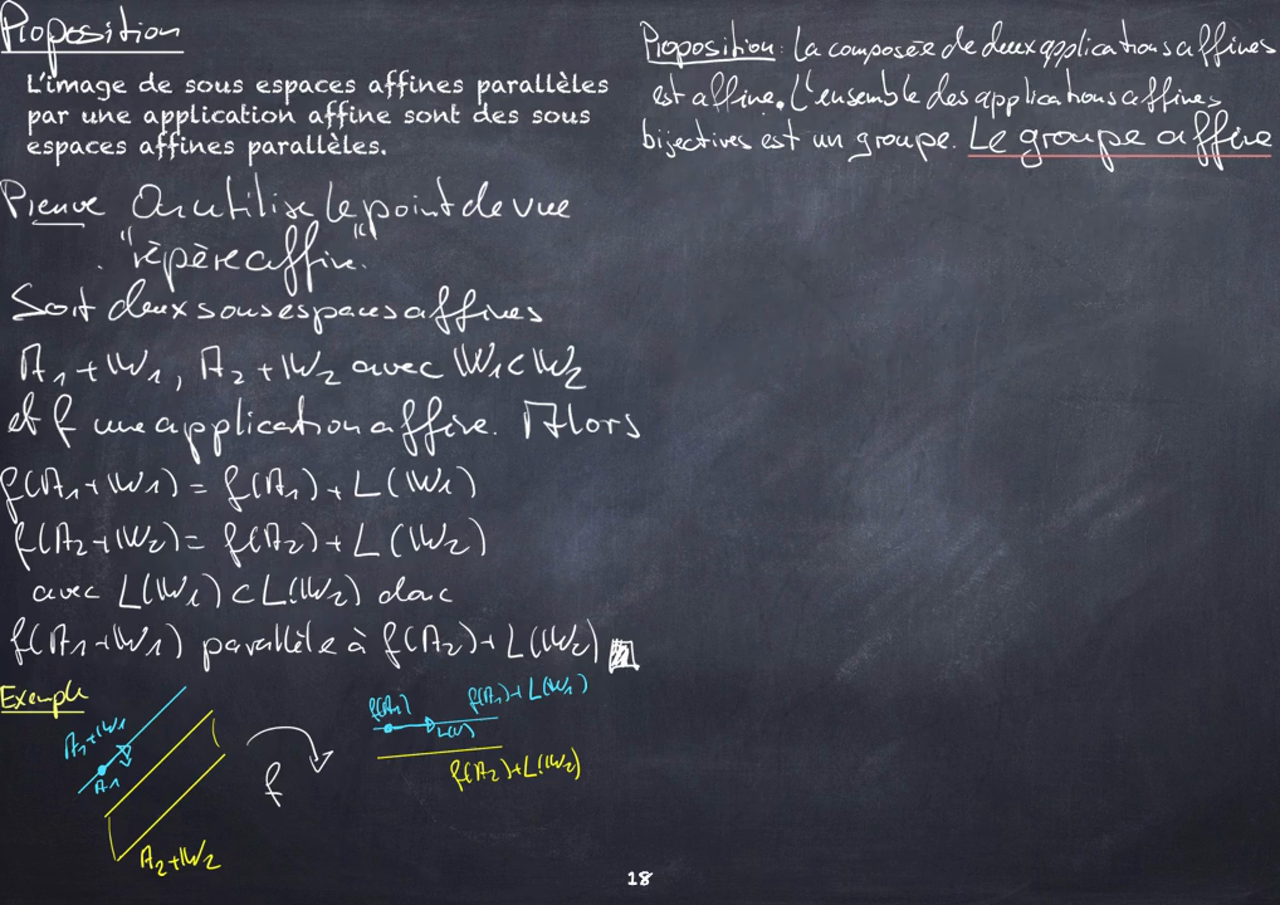 Proposition
L'image de sous espaces affines parallèles
par une application affine sont des sous
espaces affines parallèles.
Preuve On utilise le point de vue
"repère affine".
Soit deux sous espaces affines
A₁ + W₁, A₂ + W₂ avec W₁ ⊂ W₂
et f une application affine. Alors
f(A₁+W₁) = f(A₁) + L(W₁)
f(A₂+W₂) = f(A₂) + L(W₂)
avec L(W₁) ⊂ L(W₂) donc
f(A₁+W₁) parallèle à f(A₂) + L(W₂)
Exemple
A₁+W₁
A₁
A₂+W₂
f
f(A₁)
f(A₁)+L(W₁)
L(v)
f(A₂)+L(W₂)
Proposition: La composée de deux applications affines
est affine. L'ensemble des applications affines
bijectives est un groupe. Le groupe affine
18